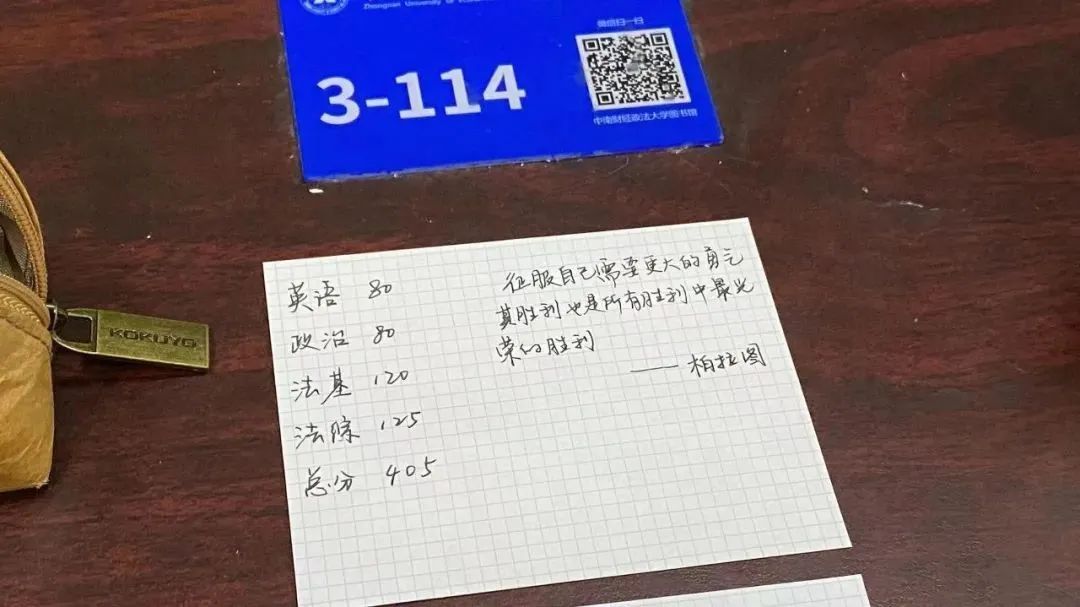 Zhongnan University of
微信扫一扫
3-114
中南财经政法大学图书馆
KOKUYO
英语 80
政治 80
法基 120
法综 125
总分 405
征服自己需要更大的勇气
其胜利也是所有胜利中最光
荣的胜利
——柏拉图